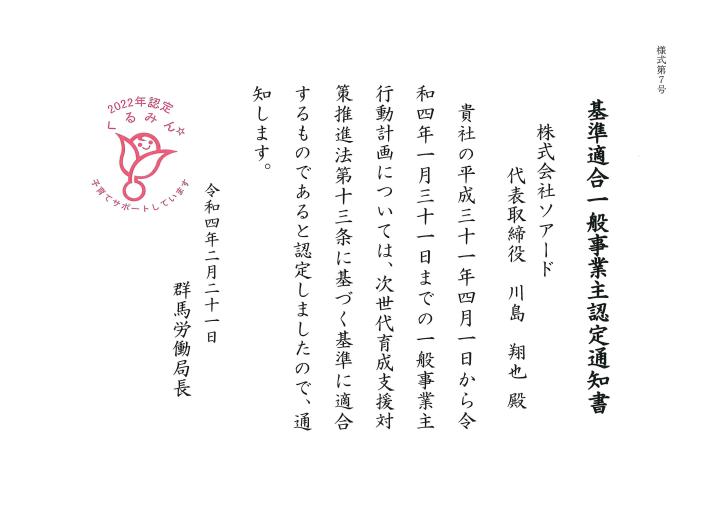 様式第７号
基準適合一般事業主認定通知書
株式会社ソアード
代表取締役　川島　翔也 殿
貴社の平成三十一年四月一日から令
和四年一月三十一日までの一般事業主
行動計画については、次世代育成支援対
策推進法第十三条に基づく基準に適合
するものであると認定しましたので、通
知します。
令和四年二月二十一日
群馬労働局長
2022年認定
くるみん☆
子育てサポートしています